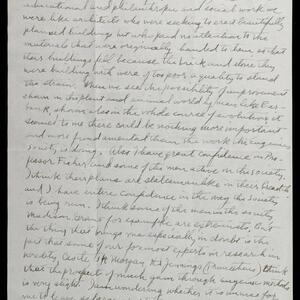 educational and philanthropic and social work we
were like architects who were seeking to erect beautifully
planned buildings but who paid no attention to the
materials that were originally handed to have so that
their buildings fell because the brick and stone they
were building with were of too poor a quality to stand
the strain. Then we see the possibility of improvement
shown in the plant and animal world by men like
shown also in the whole course of evolution it
seemed to me there could be nothing more important
and more fundamental than the work the eugenics
society is doing. Also I have great confidence in Pro-
fessor Fisher and some of the men active in this society.
I think their plans are statesmanlike in their breadth
and I have entire confidence in the way this society
is being run. I think some of the men in the society
Madison Grant for example are extremists, but
the thing that brings me especially in doubt is the
fact that some of our foremost experts or research in
heredity Castle, Morgan, Jennings, (Princeton) think
that the prospect of much gain through eugenic methods
is very slight. I am wondering whether it is wise for